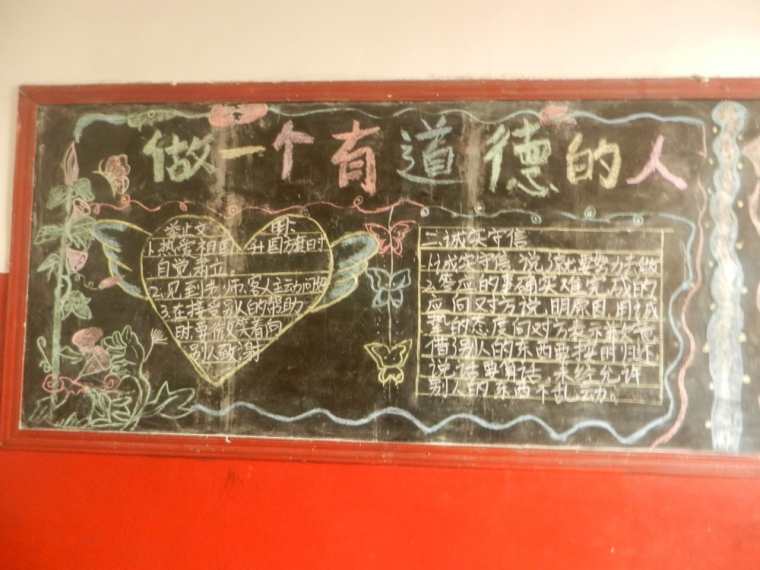 做一个有道德的人
举止文 明
1.热爱祖国,升国旗时
自觉肃立.
2.见到老师,客人主动问好
3.在接受别人的帮助
时,要微笑着向
别人致谢
二.诚实守信
1.诚实守信,说了就要努力去做
2.答应的事确实难完成的
应向对方说明原因,用诚
恳的态度向对方表示歉意
借别人的东西要按时归还
说话要 未经允许
别人的东西不乱动。